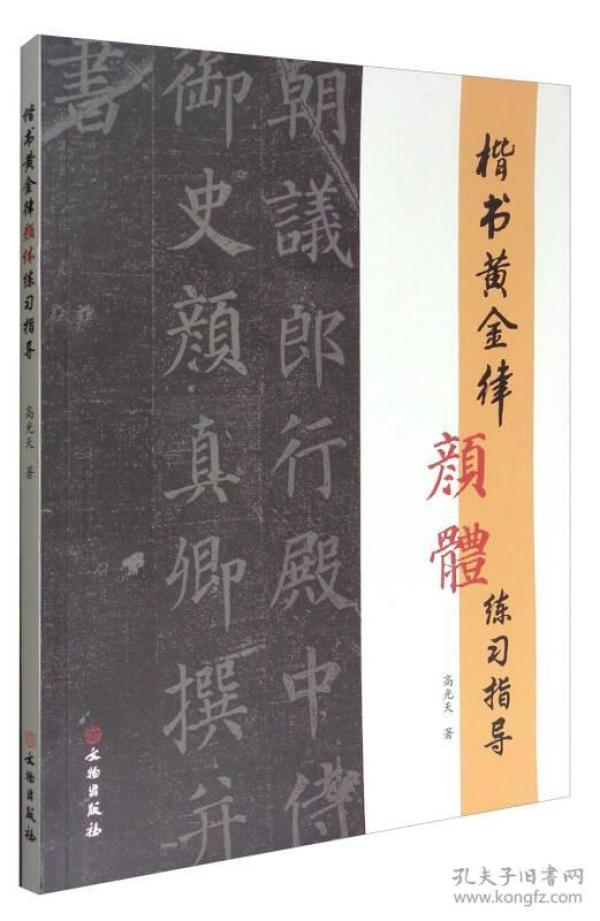 楷书黄金律
顔體
练习指导
高光天 著
朝議郎行殿中侍
御史顔真卿撰并
書
楷书黄金律颜体练习指导
高光天 著
文物出版社
孔夫子旧书网
www.kongfz.com